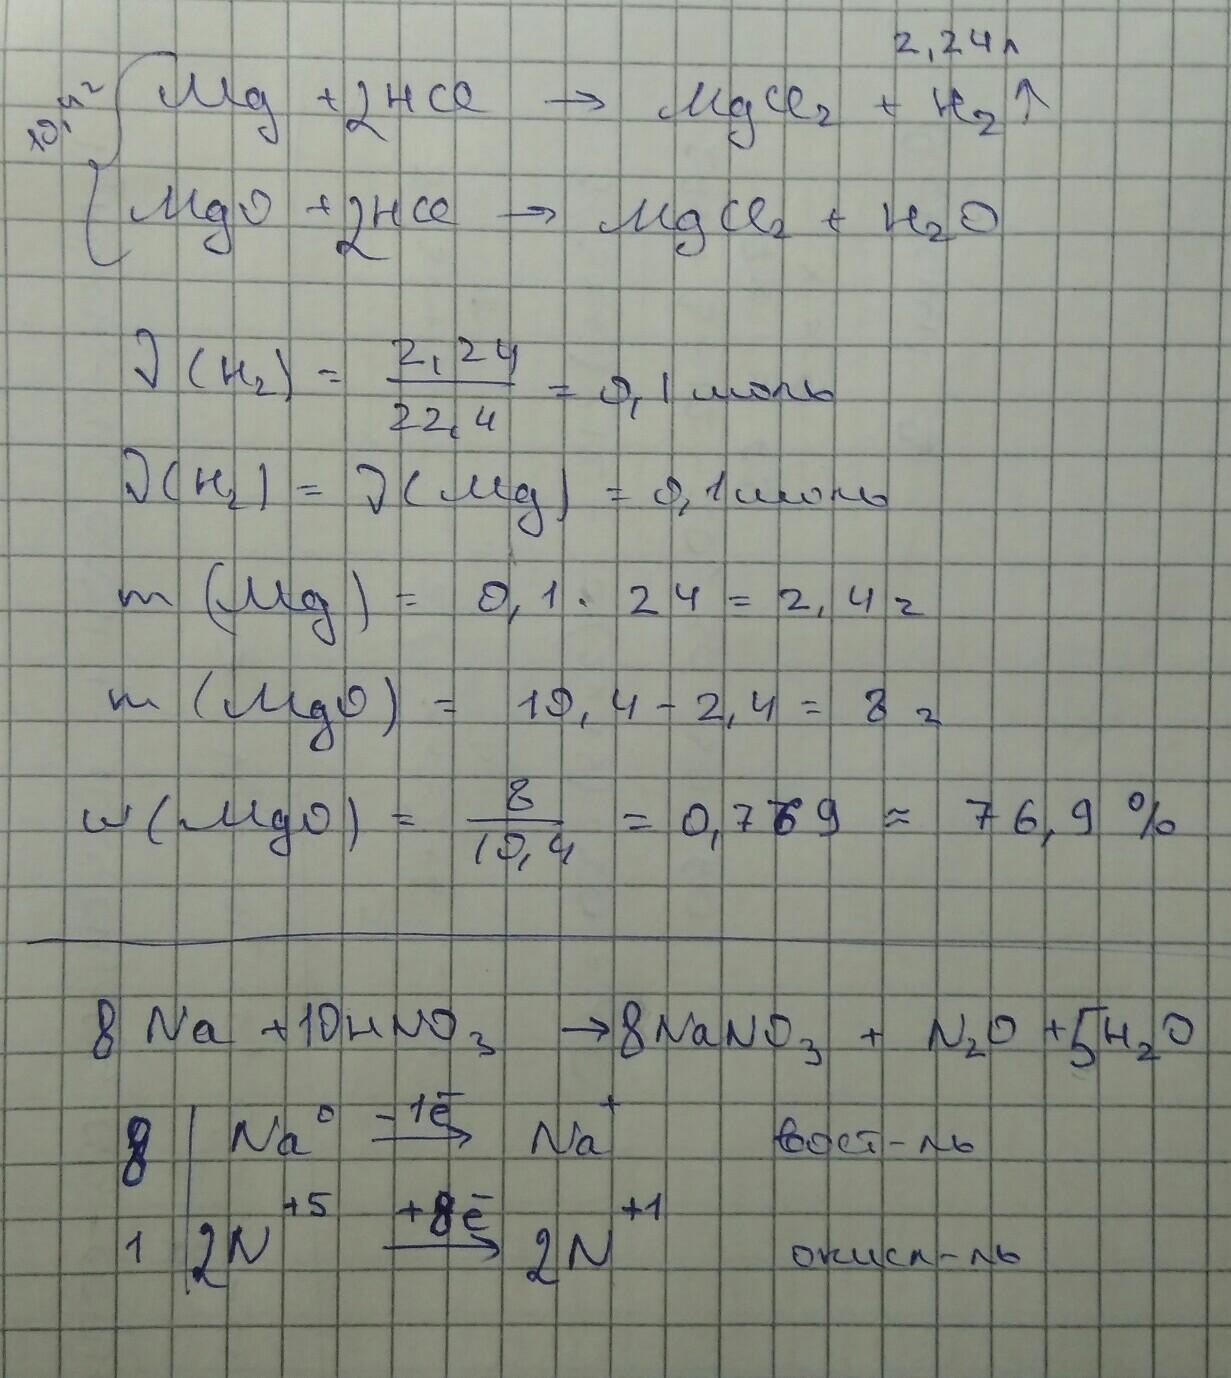 2,24 л
10,4 г Mg + 2HCl → MgCl₂ + H₂↑
MgO + 2HCl → MgCl₂ + H₂O
ν(H₂) = 2,24 / 22,4 = 0,1 моль
ν(H₂) = ν(Mg) = 0,1 моль
m (Mg) = 0,1 · 24 = 2,4 г
m (MgO) = 10,4 - 2,4 = 8 г
w (MgO) = 8 / 10,4 = 0,769 ≈ 76,9 %
8 Na + 10HNO₃ → 8NaNO₃ + N₂O + 5H₂O
8 | Na⁰ -1ē → Na⁺ вост-ль
1 | 2N⁺⁵ +8ē → 2N⁺¹ окисл-ль